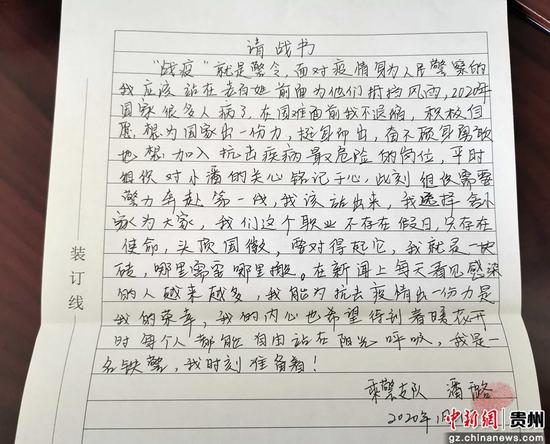 请战书
"战疫"就是警令,面对疫情身为人民警察的
我应该站在老百姓前面为他们树挡风雨,2020年
国家很多人病了,在困难面前我不退缩,积极自
愿想为国家出一份力,挺身而出,奋不顾身勇敢
地想加入抗击疾病最危险的岗位,平时
组织对小潘的关心铭记于心,此刻组织需要
警力奔赴第一线,我该站出来,我选择舍小
家为大家,我们这个职业不存在假日,只存在
使命,头顶国徽,要对得起它,我就是一块
砖,哪里需要哪里搬。在新闻上每天看见感染
的人越来越多,我能为抗击疫情出一份力是
我的荣幸,我的内心也希望得到春暖花开
时每个人都能自由站在阳光呼吸,我是一
名铁警,我时刻准备着!
乘警支队 潘
2020年1月
装订线
中新網 贵州
gz.chinanews.com.cn